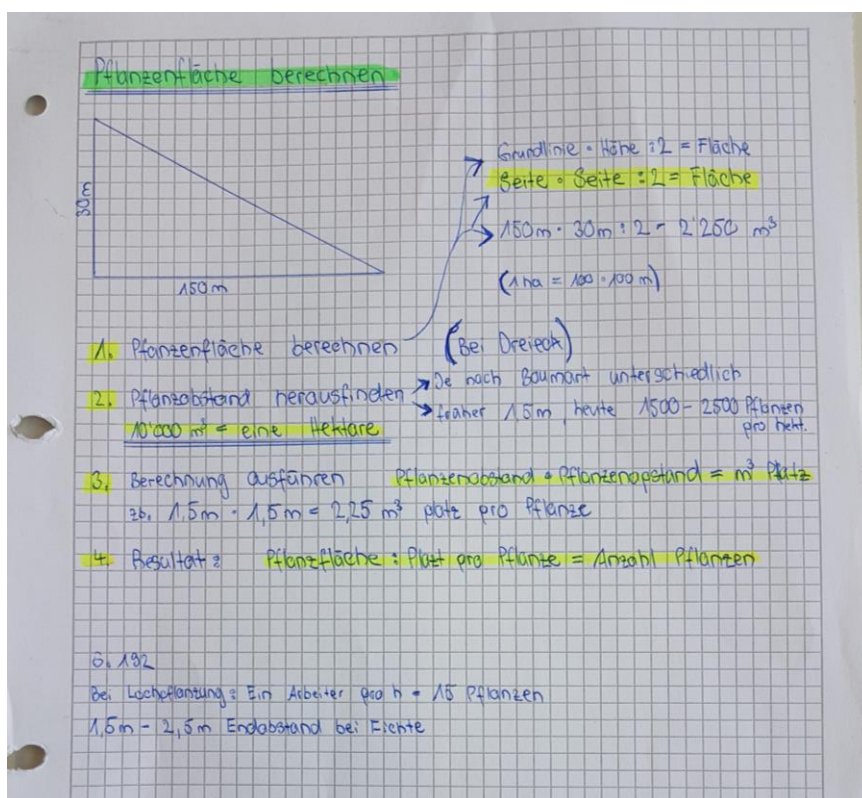 Pflanzenfläche berechnen
30m
150m
Grundlinie • Höhe : 2 = Fläche
Seite • Seite : 2 = Fläche
150m • 30m : 2 = 2'250 m³
(1 ha = 100 • 100 m)
1. Pfanzenfläche berechnen (Bei Dreieck)
2. Pflanzabstand herausfinden → Je nach Baumart unterschiedlich
→ früher 1,5m, heute 1500 - 2500 Pflanzen
pro hekt.
10'000 m³ = eine Hektare
3. Berechnung ausführen Pflanzenabstand • Pflanzenapstand = m³ Platz
zb. 1,5m • 1,5m = 2,25 m³ platz pro Pflanze
4. Resultat : Pflanzfläche : Platz pro Pflanze = Anzahl Pflanzen
S. 192
Bei Lochpflanzung : Ein Arbeiter pro h = 15 Pflanzen
1,5m - 2,5m Endabstand bei Fichte